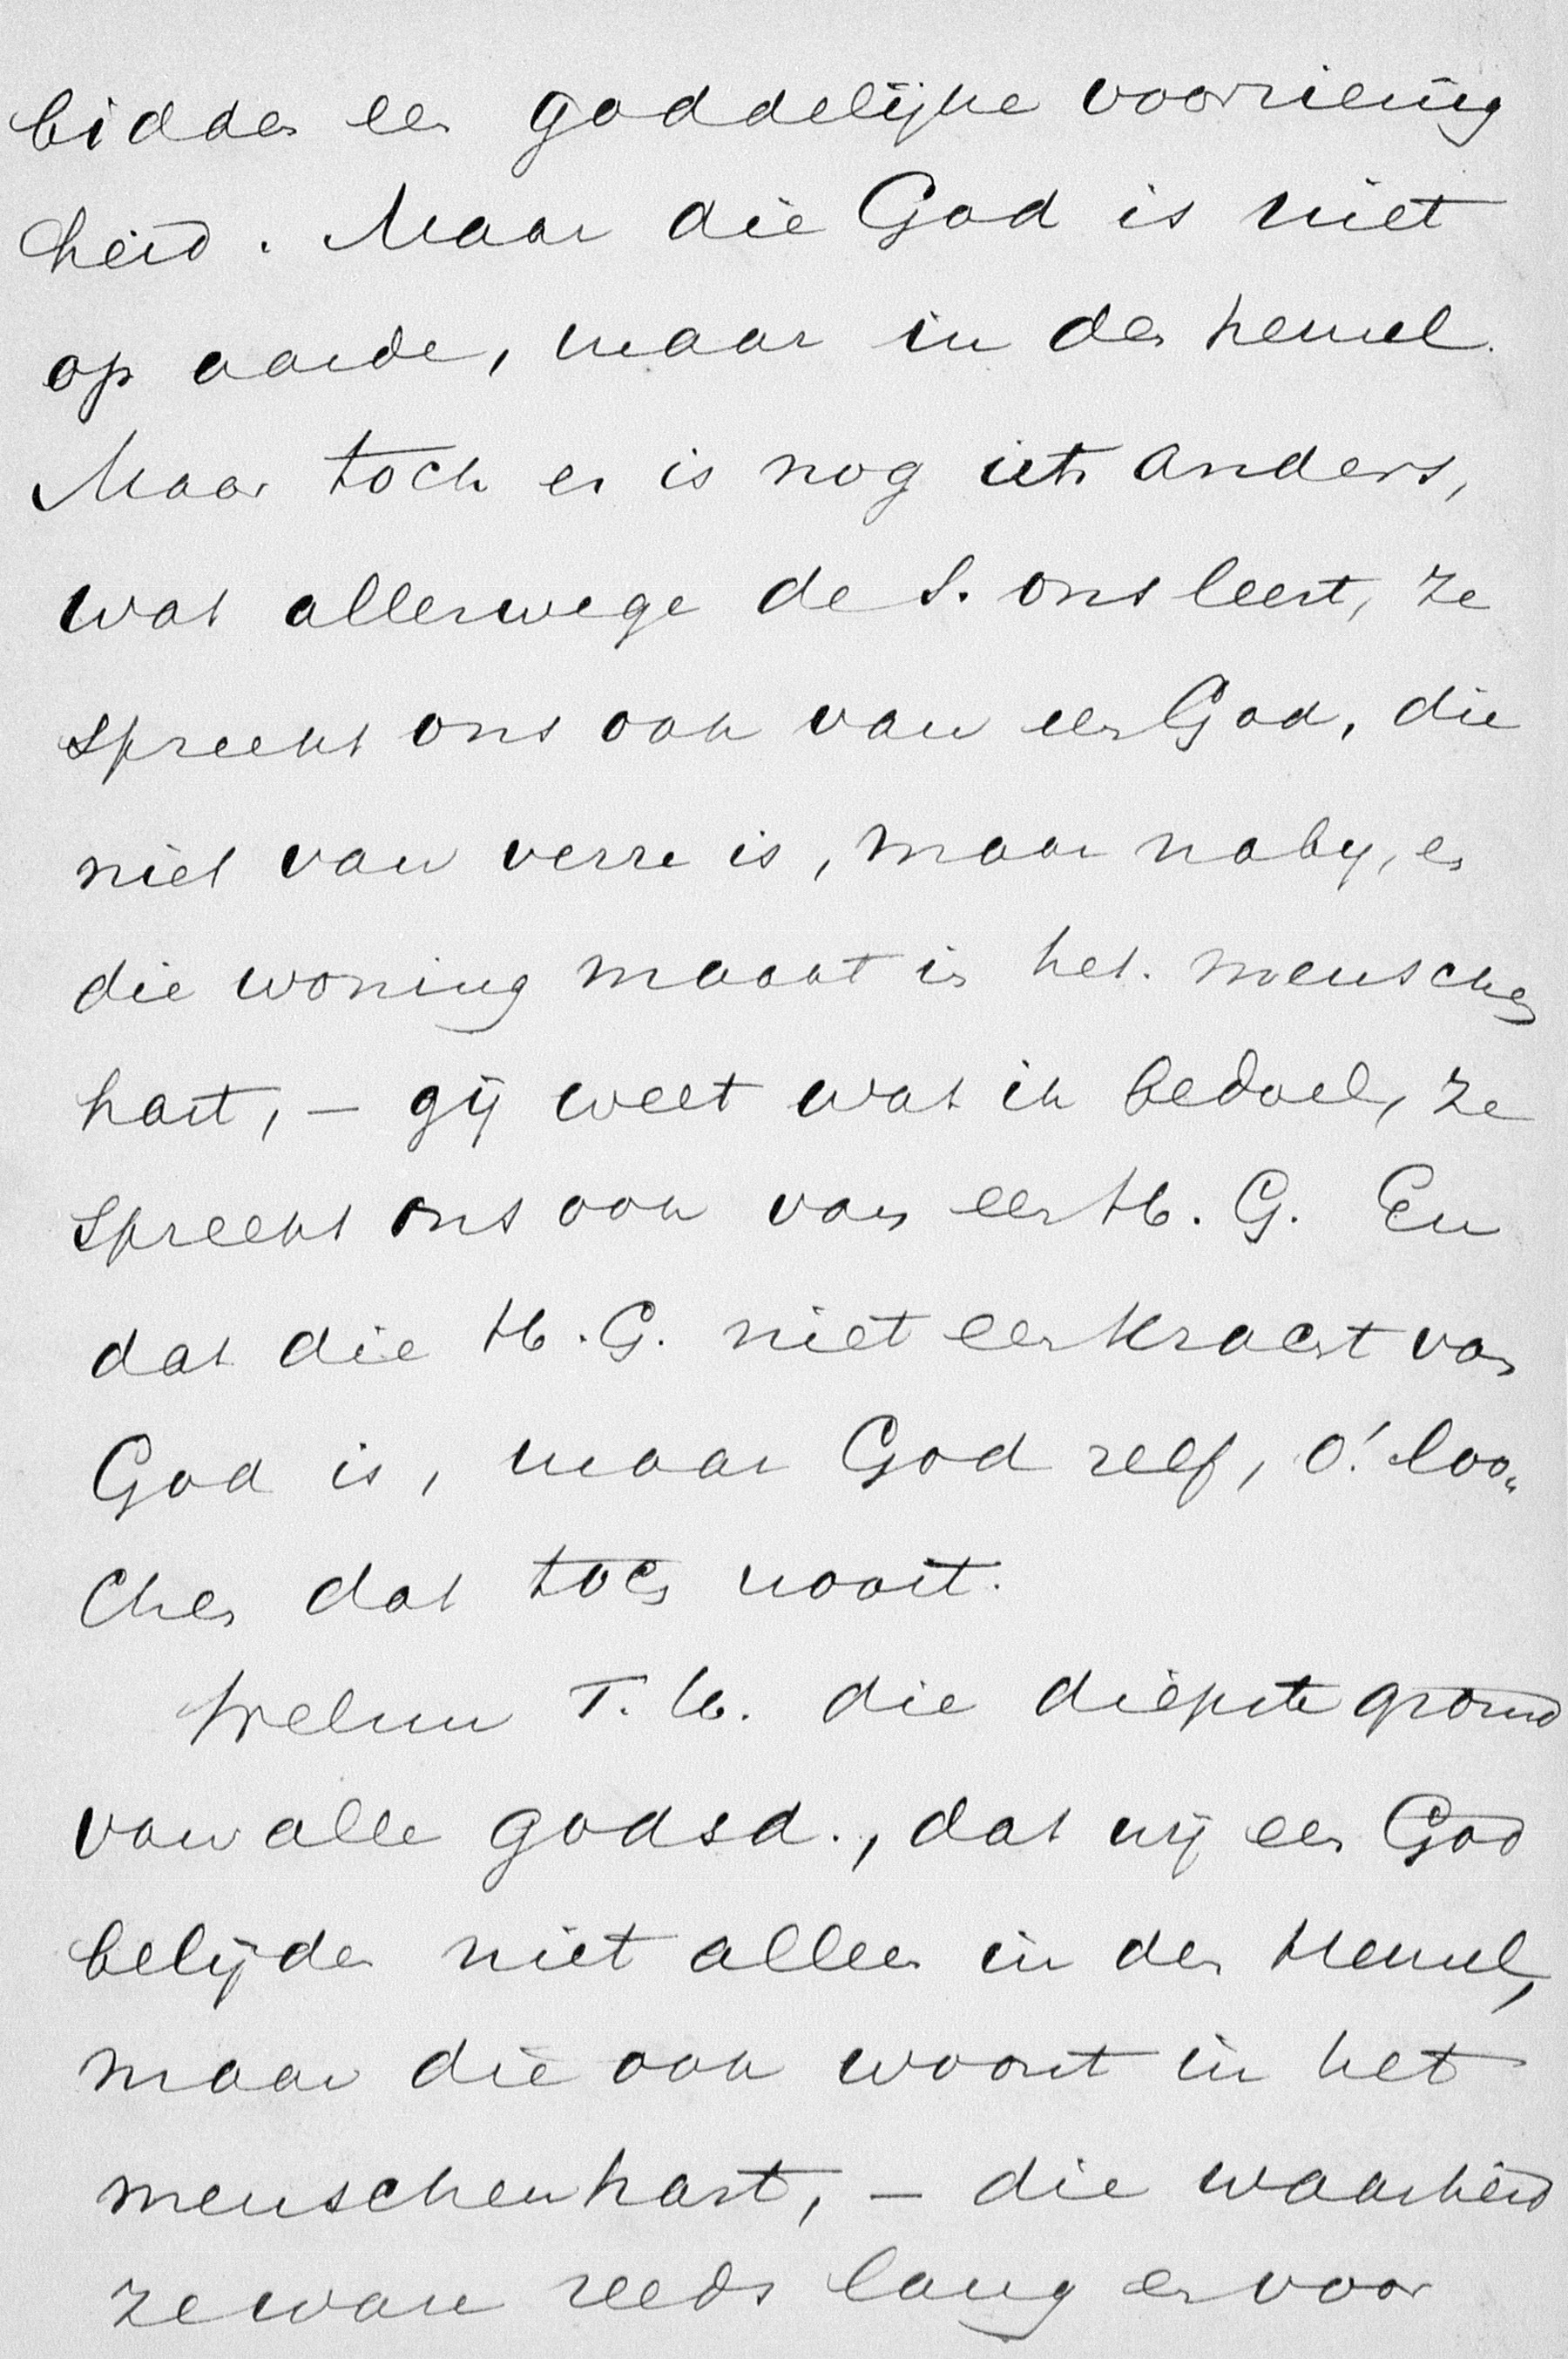 bidden een goddelijke voorzienig
heid. Maar die God is niet
op aarde, maar in den hemel.
Maar toch er is nog iets anders,
wat allerwege de S. ons leert, ze
spreekt ons ook van een God, die
niet van verre is, maar naby, en
die woning maakt in het menschen
hart, – gij weet wat ik bedoel, ze
spreekt ons ook van een H. G. En
dat die H. G. niet een kracht van
God is, maar God zelf, o! loo„
chen dat toch nooit.
Welnu T. H. die diepste grond
van alle godsd., dat wij een God
belijden niet alleen in den Hemel,
maar die ook woont in het
menschenhart, – die waarheid
ze was reeds lang en voor